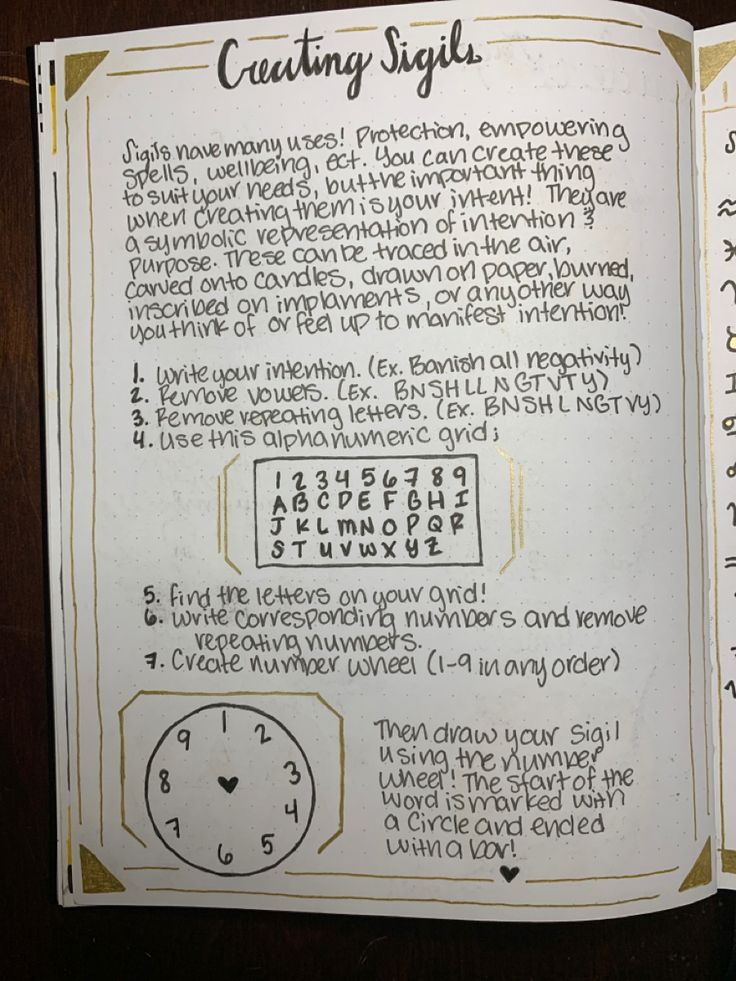 Creating Sigils
Sigils have many uses! Protection, empowering
spells, wellbeing, ect. You can create these
to suit your needs, but the important thing
when creating them is your intent! They are
a symbolic representation of intention &
purpose. These can be traced in the air,
carved onto candles, drawn on paper, burned,
inscribed on implaments, or any other way
you think of or feel up to manifest intention!
1. Write your intention. (Ex. Banish all negativity)
2. Remove vowels. (Ex. BNSHLLNGTVTY)
3. Remove repeating letters. (Ex. BNSHLNGTVY)
4. Use this alphanumeric grid;
1 2 3 4 5 6 7 8 9
A B C D E F G H I
J K L M N O P Q R
S T U V W X Y Z
5. Find the letters on your grid!
6. Write corresponding numbers and remove
repeating numbers.
7. Create number wheel (1-9 in any order)
1
2
3
4
5
6
7
8
9
Then draw your sigil
using the number
wheel! The start of the
word is marked with
a circle and ended
with a bar!